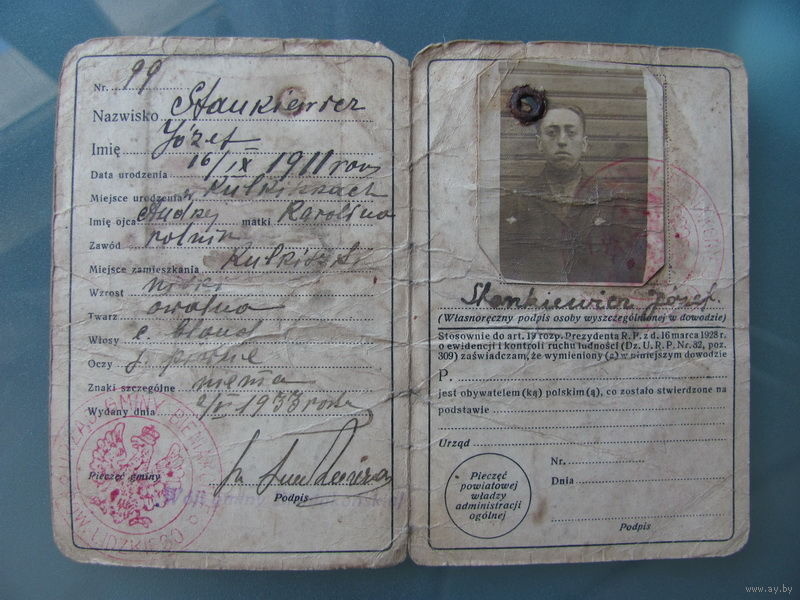 Nr. 99
Nazwisko Stankiewicz
Imię Józef
Data urodzenia 16/IX 1911 roku
Miejsce urodzenia w Kulkiszkach
Imię ojca Andrzej matki Karolina
Zawód rolnik
Miejsce zamieszkania Kulkiszki
Wzrost niski
Twarz owalna
Włosy c. blond
Oczy j. piwne
Znaki szczególne niema
Wydany dnia 1933 roku
Pieczęć gminy
Podpis
Stankiewicz Józef.
(Własnoręczny podpis osoby wyszczególnionej w dowodzie)
Stosownie do art. 19 rozp. Prezydenta R. P. z d. 16 marca 1928 r.
o ewidencji i kontroli ruchu ludności (Dz. U. R. P. Nr. 32, poz.
309) zaświadczam, że wymieniony (a) w niniejszym dowodzie
P.
jest obywatelem(ką) polskim(ą), co zostało stwierdzone na
podstawie
Urząd
Nr.
Dnia
Pieczęć
powiatowej
władzy
administracji
ogólnej
Podpis
www.ay.by